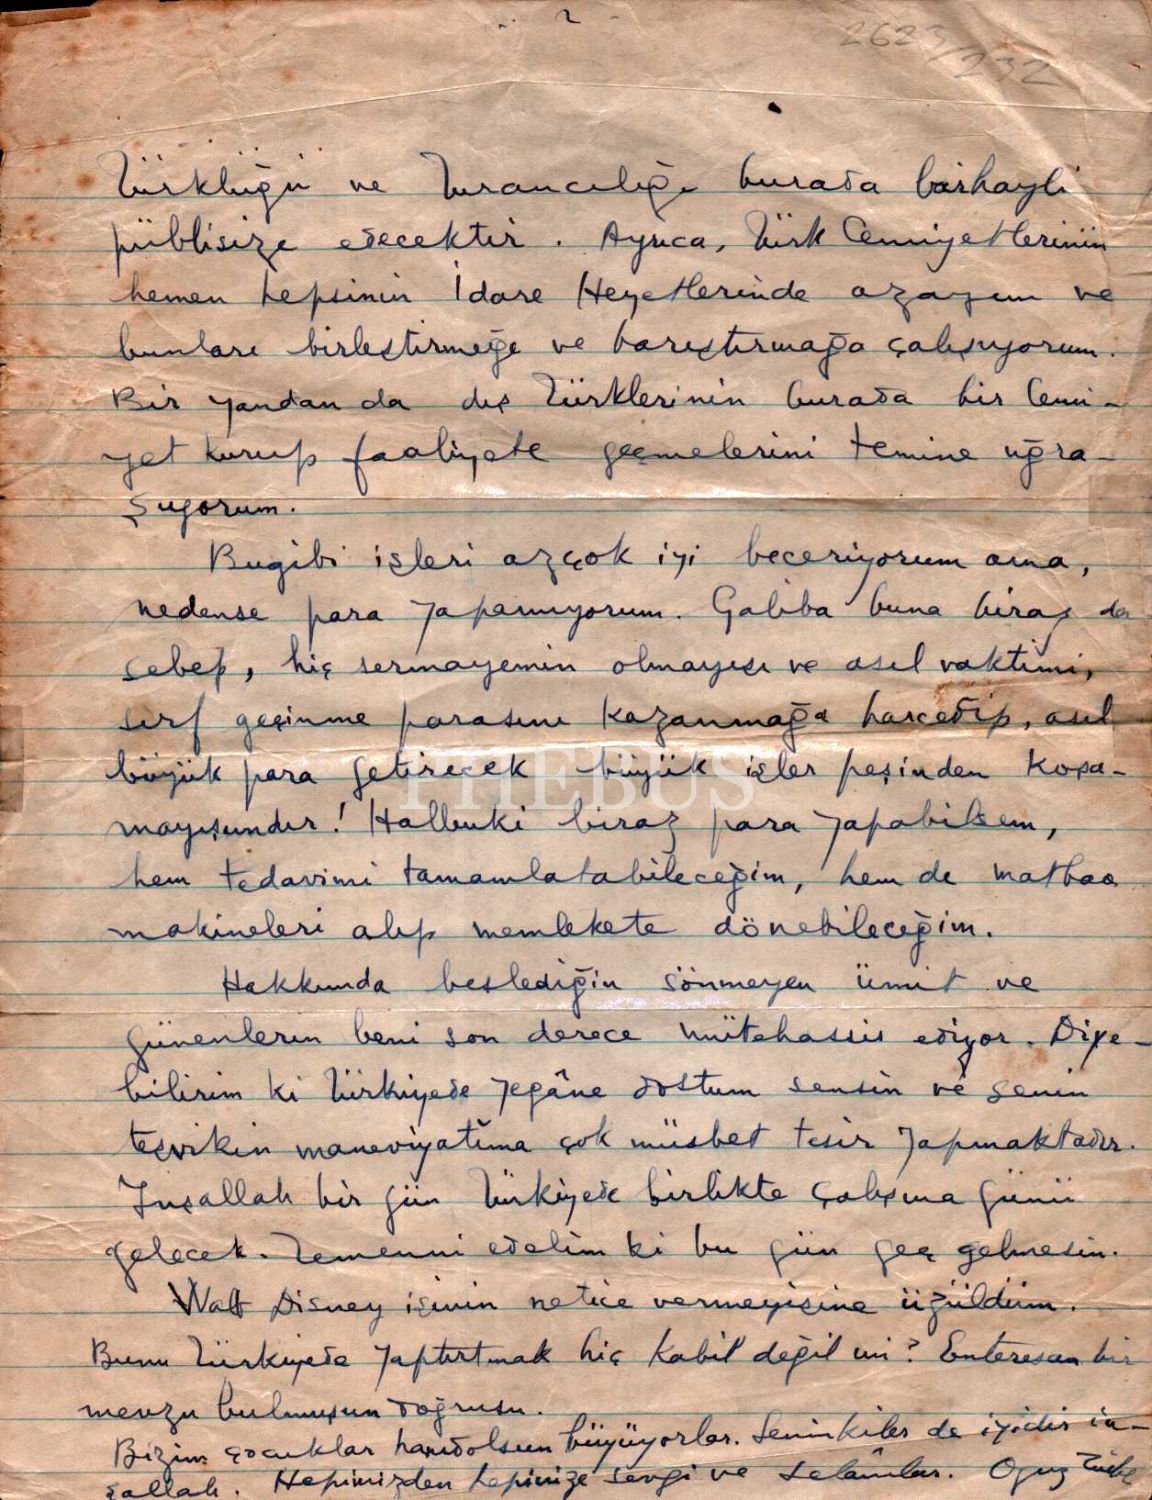 2
2623/232
Türklüğü ve Turancılığı burada birhayli
püblisize edecektir. Ayrıca, Türk Cemiyetlerinin
hemen hepsinin İdare Heyetlerinde azayım ve
bunları birleştirmeğe ve barıştırmağa çalışıyorum.
Bir yandan da dış Türklerinin burada bir Cemi-
yet kurup faaliyete geçmelerini temine uğra-
şıyorum.
Bugibi işleri azçok iyi beceriyorum ama,
nedense para yapamıyorum. Galiba buna biraz da
sebep, hiç sermayemin olmayışı ve asıl vaktimi,
sırf geçinme parasını kazanmağa harcedip, asıl
büyük para getirecek büyük işler peşinden koşa-
mayışımdır! Halbuki biraz para yapabilsem,
hem tedavimi tamamlatabileceğim, hem de matbaa
makineleri alıp memlekete dönebileceğim.
Hakkımda beslediğin sönmeyen ümit ve
güvenlerin beni son derece mütehassis ediyor. Diye-
bilirim ki Türkiyede yegâne dostum sensin ve senin
teşvikin maneviyatıma çok müsbet tesir yapmaktadır.
İnşallah bir gün Türkiyede birlikte çalışma günü
gelecek. Temenni edelim ki bu gün geç gelmesin.
Walt Disney işinin netice vermeyişine üzüldüm.
Bunu Türkiyede yaptırtmak hiç kabil değil mi? Enteresan bir
mevzu bulmuşun doğrusu.
Bizim çocuklar hamdolsun büyüyorlar. Seninkiler de iyidir in-
şallah. Hepimizden hepinize sevgi ve selâmlar. Oguz
PHEBUS